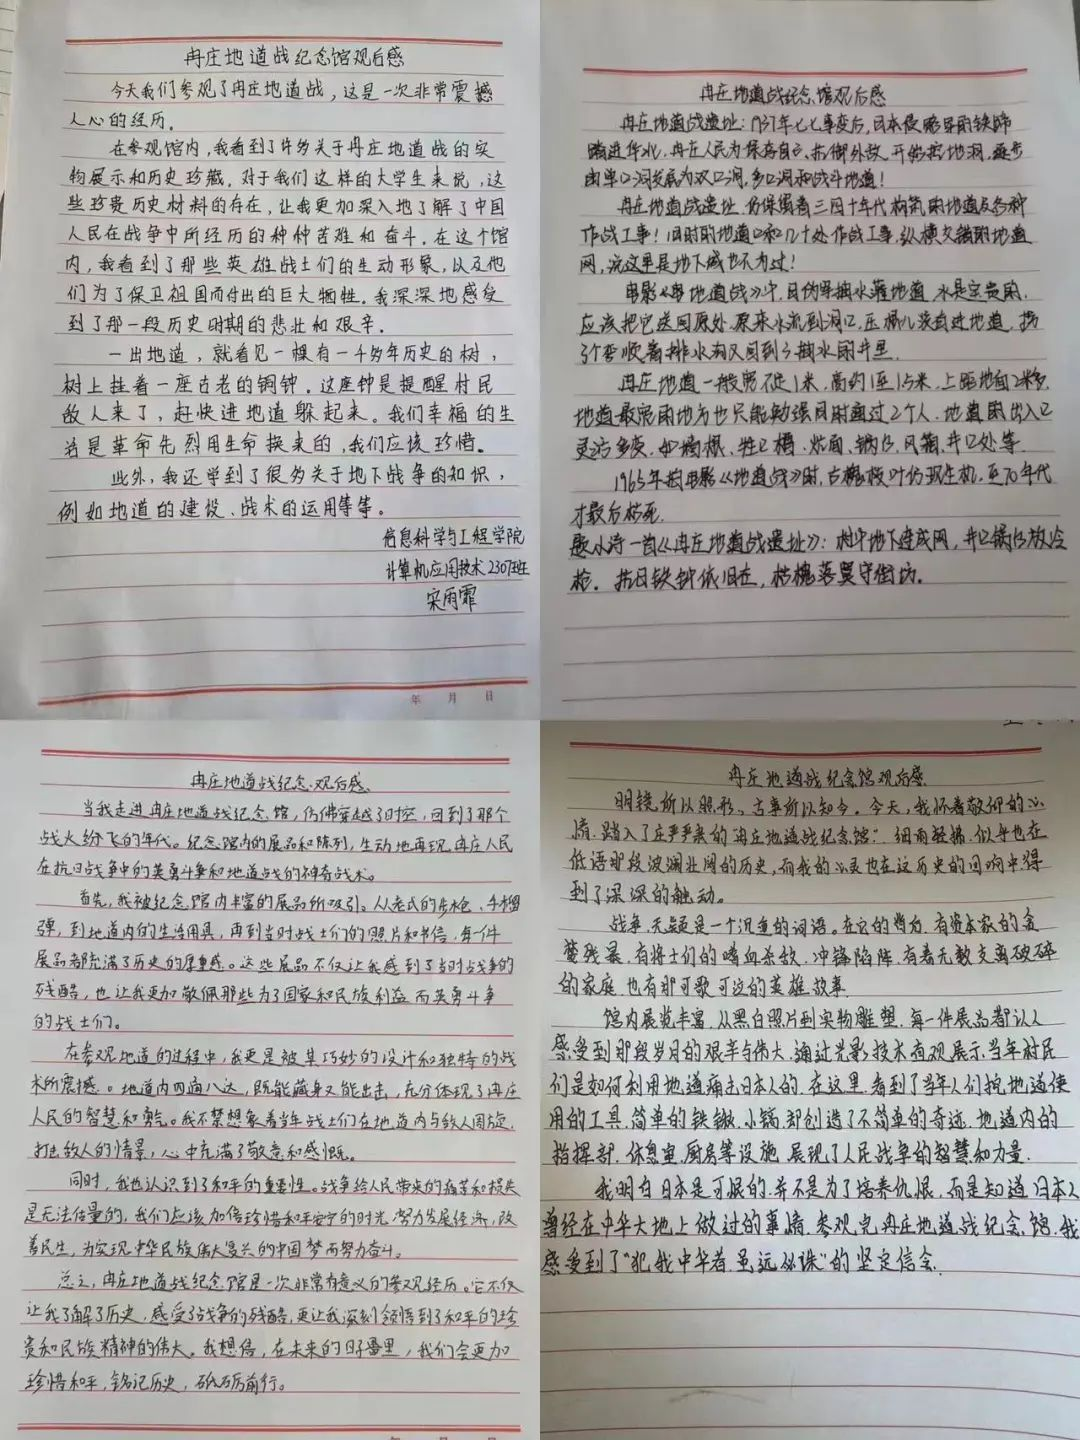 冉庄地道战纪念馆观后感
今天我们参观了冉庄地道战，这是一次非常震撼
人心的经历。
在参观馆内，我看到了许多关于冉庄地道战的实
物展示和历史珍藏。对于我们这样的大学生来说，这
些珍贵历史材料的存在，让我更加深入地了解了中国
人民在战争中所经历的种种苦难和奋斗。在这个馆
内，我看到了那些英雄战士们的生动形象，以及他
们为了保卫祖国而付出的巨大牺牲。我深深地感受
到了那一段历史时期的悲壮和艰辛。
一出地道，就看见一棵有一千多年历史的树，
树上挂着一座古老的铜钟。这座钟是提醒村民
敌人来了，赶快进地道躲起来。我们幸福的生
活是革命先烈用生命换来的，我们应该珍惜。
此外，我还学到了很多关于地下战争的知识，
例如地道的建设、战术的运用等等。
信息科学与工程学院
计算机应用技术2307班
宋雨霏
年 月 日
冉庄地道战纪念馆观后感
冉庄地道战遗址：1937年七七事变后，日本侵略军的铁蹄
踏进华北，冉庄人民为保存自己、抗御外敌，开始挖地洞，逐步
由单口洞发展为双口洞，多口洞和战斗地道！
冉庄地道战遗址，仍保留着三四十年代构筑的地道及各种
作战工事！旧时的地道口和几十处作战工事，纵横交错的地道
网，说这里是地下城也不为过！
电影《地道战》中，日伪军抽水灌地道，水是宝贵的，
应该把它送回原处，原来水流到洞口，压根儿没有进地道，拐
了个弯顺着排水沟又回到了抽水的井里。
冉庄地道一般宽不足1米，高约1至1.5米，上距地面2米多，
地道最宽的地方也只能勉强同时通过2个人，地道的出入口
灵活多变，如墙根、牲口槽、炕面、锅台、风箱、井口处等。
1965年拍电影《地道战》时，古槐枝叶仍现生机，至70年代
才最后枯死。
小诗一首《冉庄地道战遗址》：村中地下连成网，井口锅台放冷
枪。抗日铁钟依旧在，枯槐落翼守街坊。
冉庄地道战纪念观后感
当我走进冉庄地道战纪念馆，仿佛穿越了时空，回到了那个
战火纷飞的年代。纪念馆内的展品和陈列，生动地再现冉庄人民
在抗日战争中的英勇斗争和地道战的神奇战术。
首先，我被纪念馆内丰富的展品所吸引。从老式的步枪、手榴
弹，到地道内的生活用具，再到当时战士们的照片和书信，每一件
展品都充满了历史的厚重感。这些展品不仅让我感到了当时战争的
残酷，也让我更加敬佩那些为了国家和民族利益而英勇斗争
的战士们。
在参观地道的过程中，我更是被其巧妙的设计和独特的战
术所震撼。地道内四通八达，既能藏身又能出击，充分体现了冉庄
人民的智慧和勇气。我不禁想象着当年战士们在地道内与敌人周旋，
打击敌人的情景，心中充满了敬意和感慨。
同时，我也认识到了和平的重要性。战争给人民带来的痛苦和损失
是无法估量的，我们应该加倍珍惜和平安宁的时光，努力发展经济，改
善民生，为实现中华民族伟大复兴的中国梦而努力奋斗。
总之，冉庄地道战纪念馆是一次非常有意义的参观经历。它不仅
让我了解了历史，感受了战争的残酷，更让我深刻领悟到了和平的珍
贵和民族精神的伟大。我想信，在未来的日子里，我们会更加
珍惜和平，铭记历史，砥砺前行。
冉庄地道战纪念馆观后感
明镜所以照形，古事所以知今。今天，我怀着敬仰的心
情，踏入了庄严肃穆的冉庄地道战纪念馆。细雨轻拂，似乎也在
低语那段波澜壮阔的历史，而我的心灵也在这历史的回响中得
到了深深的触动。
战争，无疑是一个沉重的词语。在它的背后，有资本家的贪
婪残暴，有将士们的嗜血杀敌，冲锋陷阵，有着无数支离破碎
的家庭，也有那可歌可泣的英雄故事。
馆内展览丰富，从黑白照片到实物雕塑，每一件展品都让人
感受到那段岁月的艰辛与伟大，通过光影技术直观展示当年村民
们是如何利用地道痛击日本人的。在这里，看到了当年人们挖地道使
用的工具，简单的铁锨，小镐，却创造了不简单的奇迹，地道内的
指挥部，休息室，厨房等设施，展现了人民战争的智慧和力量。
我明白日本是可恨的，并不是为了培养仇恨，而是知道日本人
曾经在中华大地上做过的事情。参观完冉庄地道战纪念馆，我
感受到了“犯我中华者，虽远必诛”的坚定信念。